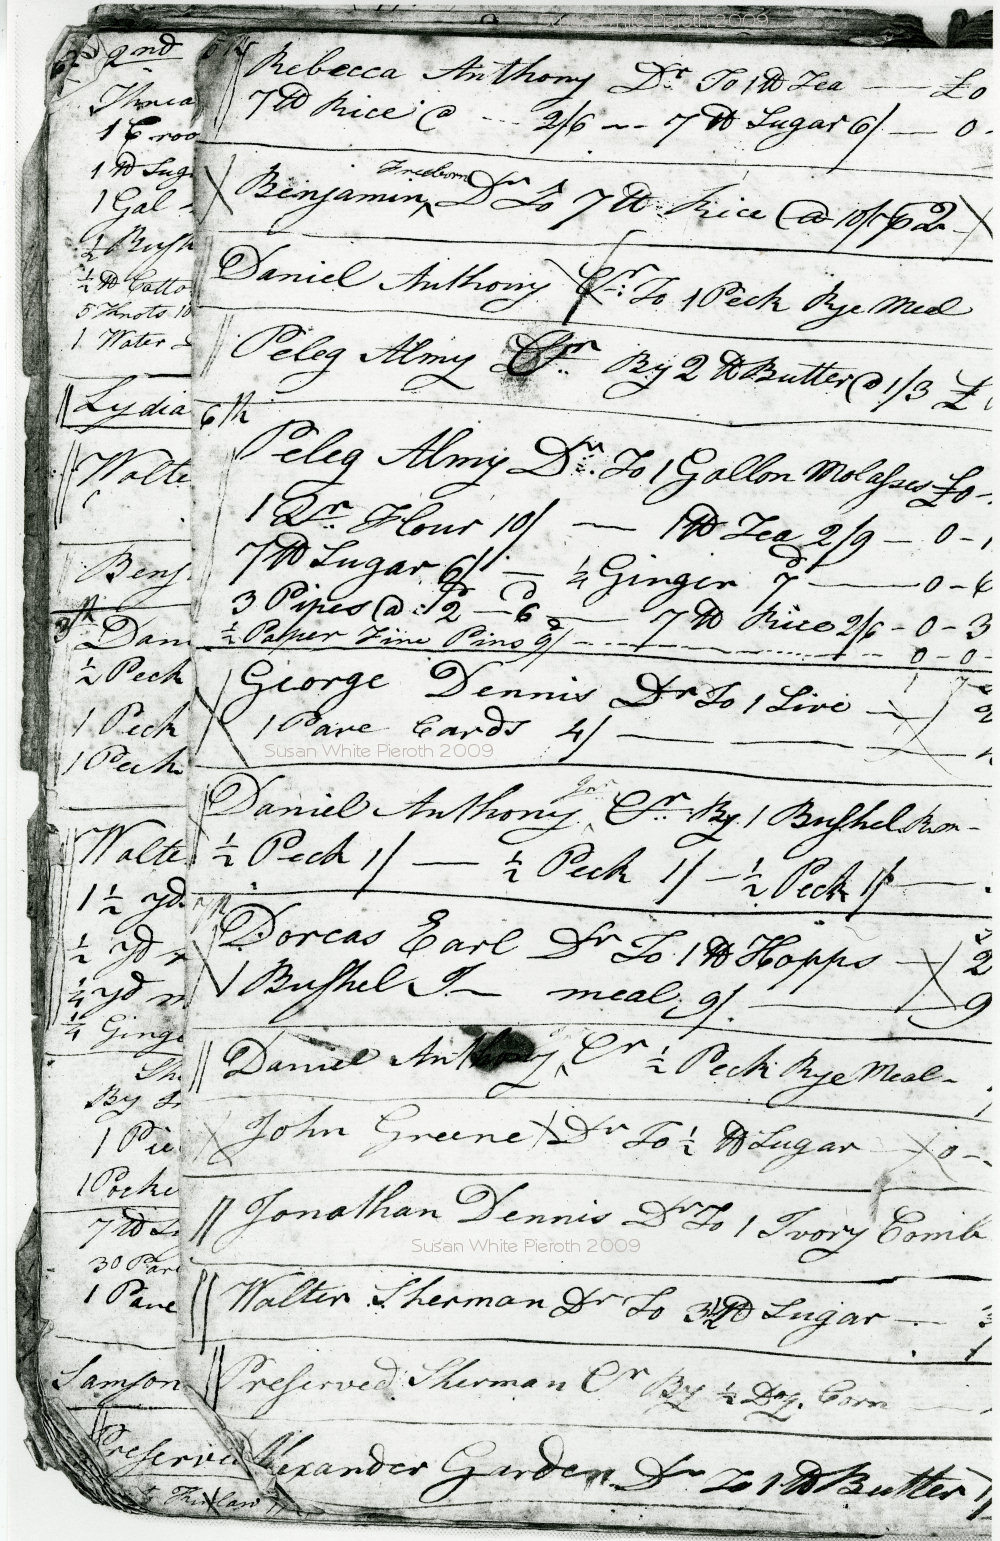 White Pieroth 2009
2nd
Threa
1 Croo
1 ℔ Sug
1 Gal
½ Bush
½ ℔ Cotto
5 Knots 10
1 Water
Lydia
Walte
Benj
Dan
½ Peck
1 Peck
1 Peck
Walte
1 ½ yd
½ yd
¼ yd
¼ Ginge
She
By
1 Pie
1 Pocke
7 ℔ S
30 Pare
1 Pare
Samson
Preserved
5th
Rebecca Anthony Dr To 1 ℔ Tea — £0
7 ℔ Rice @ --- 2/6 -- 7 ℔ Sugar 6/ — 0-
Freeborn
Benjamin ^ Dr To 7 ℔ Rice @ 10/
Daniel Anthony Cr To 1 Peck Rye Meal
Peleg Almy Cr By 2 ℔ Butter @ 1/3 £
6th
Peleg Almy Dr To 1 Gallon Molasses £0-
1 Qr Flour 10/ — 1 ℔ Tea 2/9 - 0-1
7 ℔ Sugar 6/ — ¼ Ginger 7d — 0-6
3 Pipes @ d2 - d6 — 7 ℔ Rice 2/6 - 0-3
½ Paper Fine Pins 9/ --- 0-0-
George Dennis Dr To 1 Sive
1 Pare Cards 4/ —
Susan White Pieroth 2009
Daniel Anthony Jnr Cr By 1 Bushel
½ Peck 1/ — ½ Peck 1/ - ½ Peck 1/ —
7th
Dorcas Earl Dr To 1 ℔ Hopps — 2
1 Bushel I— meal 9/ — 9
Daniel Anthony Cr ½ Peck Rye Meal-
John Greene Dr To ½ ℔ Sugar 0-
Jonathan Dennis Dr To 1 Ivory Comb
Susan White Pieroth 2009
Walter Sherman Dr To 3½ ℔ Sugar — 3
Preserved Sherman Cr By ½ Doz. Corn
Alexander Garden Dr To 1 ℔ Butter